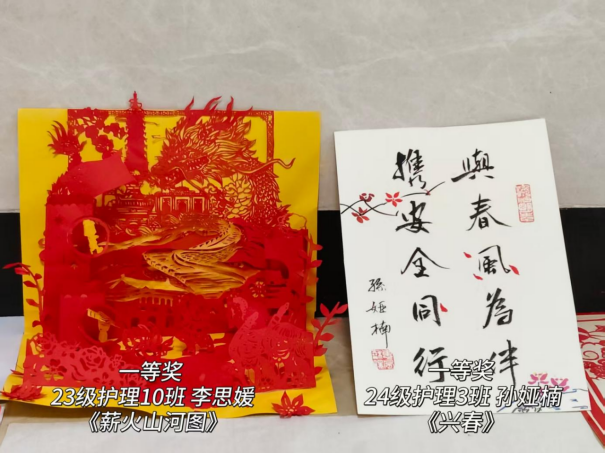 與春風為伴
攜安全同行
孫娅楠
一等奖
23级护理10班 李思媛
《薪火山河图》
一等奖
24级护理3班 孙娅楠
《兴春》